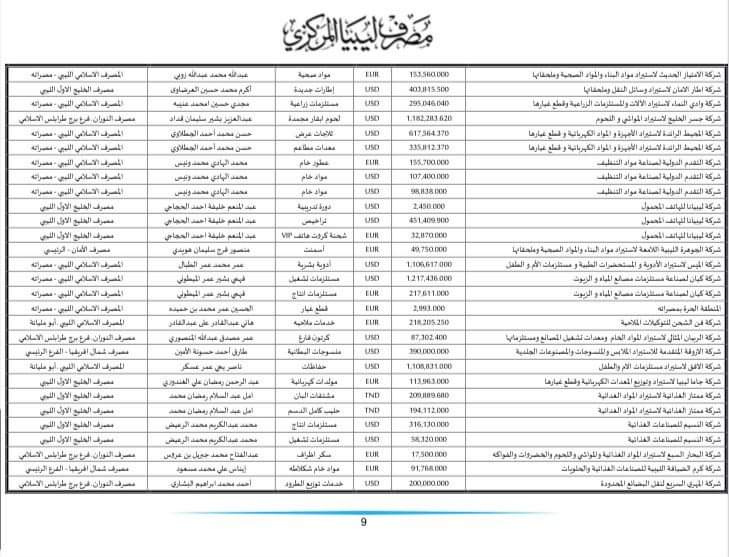 مصرف ليبيا المركزي
شركة الامتياز الحديث لاستيراد مواد البناء والمواد الصحية وملحقاتها 153,560.000 EUR مواد صحية عبدالله محمد عبدالله زوبي المصرف الاسلامي الليبي - مصراته
شركة اطار الامان لاستيراد وسائل النقل وملحقاتها 403,815.500 USD إطارات جديدة أكرم محمد حسين العرضاوي مصرف الخليج الاول الليبي
شركة وادي النماء لاستيراد الآلات والمستلزمات الزراعية وقطع غيارها 295,046.040 USD مستلزمات زراعية مجدي حسين امحمد عنيبه المصرف الاسلامي الليبي - مصراته
شركة جسر الخليج لاستيراد المواشي و اللحوم 1,182,283.620 USD لحوم ابقار مجمدة عبدالعزيز بشير سليمان قداد مصرف النوران. فرع برج طرابلس الاسلامي
شركة المحيط الرائدة لاستيراد الأجهزة و المواد الكهربائية و قطع غيارها 617,564.370 USD ثلاجات عرض حسن محمد أحمد الجطلاوي المصرف الاسلامي الليبي - مصراته
شركة المحيط الرائدة لاستيراد الأجهزة و المواد الكهربائية و قطع غيارها 335,812.370 USD معدات مطاعم حسن محمد أحمد الجطلاوي المصرف الاسلامي الليبي - مصراته
شركة التقدم الدولية لصناعة مواد التنظيف 155,700.000 EUR عطور خام محمد الهادي محمد ونيس المصرف الاسلامي الليبي - مصراته
شركة التقدم الدولية لصناعة مواد التنظيف 107,400.000 USD مواد خام محمد الهادي محمد ونيس المصرف الاسلامي الليبي - مصراته
شركة التقدم الدولية لصناعة مواد التنظيف 98,838.000 USD مواد خام محمد الهادي محمد ونيس المصرف الاسلامي الليبي - مصراته
شركة ليبيانا للهاتف المحمول 2,450.000 USD دورة تدريبية عبد المنعم خليفة احمد الحجاجي مصرف الخليج الاول الليبي
شركة ليبيانا للهاتف المحمول 451,409.900 USD تراخيص عبد المنعم خليفة احمد الحجاجي مصرف الخليج الاول الليبي
شركة ليبيانا للهاتف المحمول 32,870.000 EUR شحنة كروت هاتف VIP عبد المنعم خليفة احمد الحجاجي مصرف الخليج الاول الليبي
شركة الجوهرة الليبية اللامعة لاستيراد مواد البناء والمواد الصحية وملحقاتها 49,750.000 EUR أسمنت منصور فرج سليمان هويدي مصرف الأمان - الرئيسي
شركة الميس لاستيراد الأدوية و المستحضرات الطبية و مستلزمات الأم و الطفل 1,106,617.000 USD أدوية بشرية عمر محمد عمر الطبال المصرف الاسلامي الليبي - مصراته
شركة كيان لصناعة مستلزمات مصانع المياه و الزيوت 1,217,436.000 USD مستلزمات تشغيل فهمي بشير عمر المبطوني المصرف الاسلامي الليبي - مصراته
شركة كيان لصناعة مستلزمات مصانع المياه و الزيوت 217,611.000 EUR مستلزمات انتاج فهمي بشير عمر المبطوني المصرف الاسلامي الليبي - مصراته
المنطقة الحرة بمصراته 2,993.000 EUR قطع غيار الحسين عمر محمد بن حميده المصرف الاسلامي الليبي - مصراته
شركة فن الشحن للتوكيلات الملاحية 218,205.250 EUR خدمات ملاحيه هاني عبدالقادر علي عبدالقادر المصرف الاسلامي الليبي. أبو مليانة
شركة الربيان المثالي لاستيراد المواد الخام ومعدات تشغيل المصانع ومستلزماتها 87,302.400 USD كرتون فارغ عمر مصدق عبدالله المنصوري مصرف النوران. فرع برج طرابلس الاسلامي
شركة الازوقة المتقدمة للاستيراد الملابس والمنسوجات والمصنوعات الجلدية 390,000.000 USD منسوجات البطانية طارق أحمد حسونة الأمين مصرف شمال افريقيا - الفرع الرئيسي
شركة الافق لاستيراد مستلزمات الأم والطفل 1,108,831.000 USD حفاظات ناصر يحي عمر عسكر المصرف الاسلامي الليبي. أبو مليانة
شركة جاما ليبيا لاستيراد وتوزيع المعدات الكهربائية وقطع غيارها 113,963.000 EUR مولدات كهربائية عبد الرحمن رمضان علي الغندوري مصرف الخليج الاول الليبي
شركة ممتاز الغذائية لاستيراد المواد الغذائية 209,889.680 TND مشتقات البان امل عبد السلام رمضان محمد مصرف الخليج الاول الليبي
شركة ممتاز الغذائية لاستيراد المواد الغذائية 194,112.000 TND حليب كامل الدسم امل عبد السلام رمضان محمد مصرف الخليج الاول الليبي
شركة النسيم للصناعات الغذائية 316,130.000 USD مستلزمات انتاج محمد عبدالكريم محمد الرعيض مصرف الخليج الاول الليبي
شركة النسيم للصناعات الغذائية 58,320.000 USD مستلزمات تشغيل محمد عبدالكريم محمد الرعيض مصرف الخليج الاول الليبي
شركة البحار السبع لاستيراد المواد الغذائية والمواشي واللحوم والخضروات والفواكه 17,500.000 EUR سكر اطراف عبدالفتاح محمد جبريل بن عروس مصرف النوران. فرع برج طرابلس الاسلامي
شركة كرم الضيافة الليبية للصناعات الغذائية والحلويات 91,768.000 EUR مواد خام شكلاطه إيناس علي محمد مسعود مصرف شمال افريقيا - الفرع الرئيسي
شركة المهري السريع لنقل البضائع المحدودة 200,000.000 USD خدمات توزيع الطرود أحمد محمد ابراهيم البشاري مصرف النوران. فرع برج طرابلس الاسلامي
9